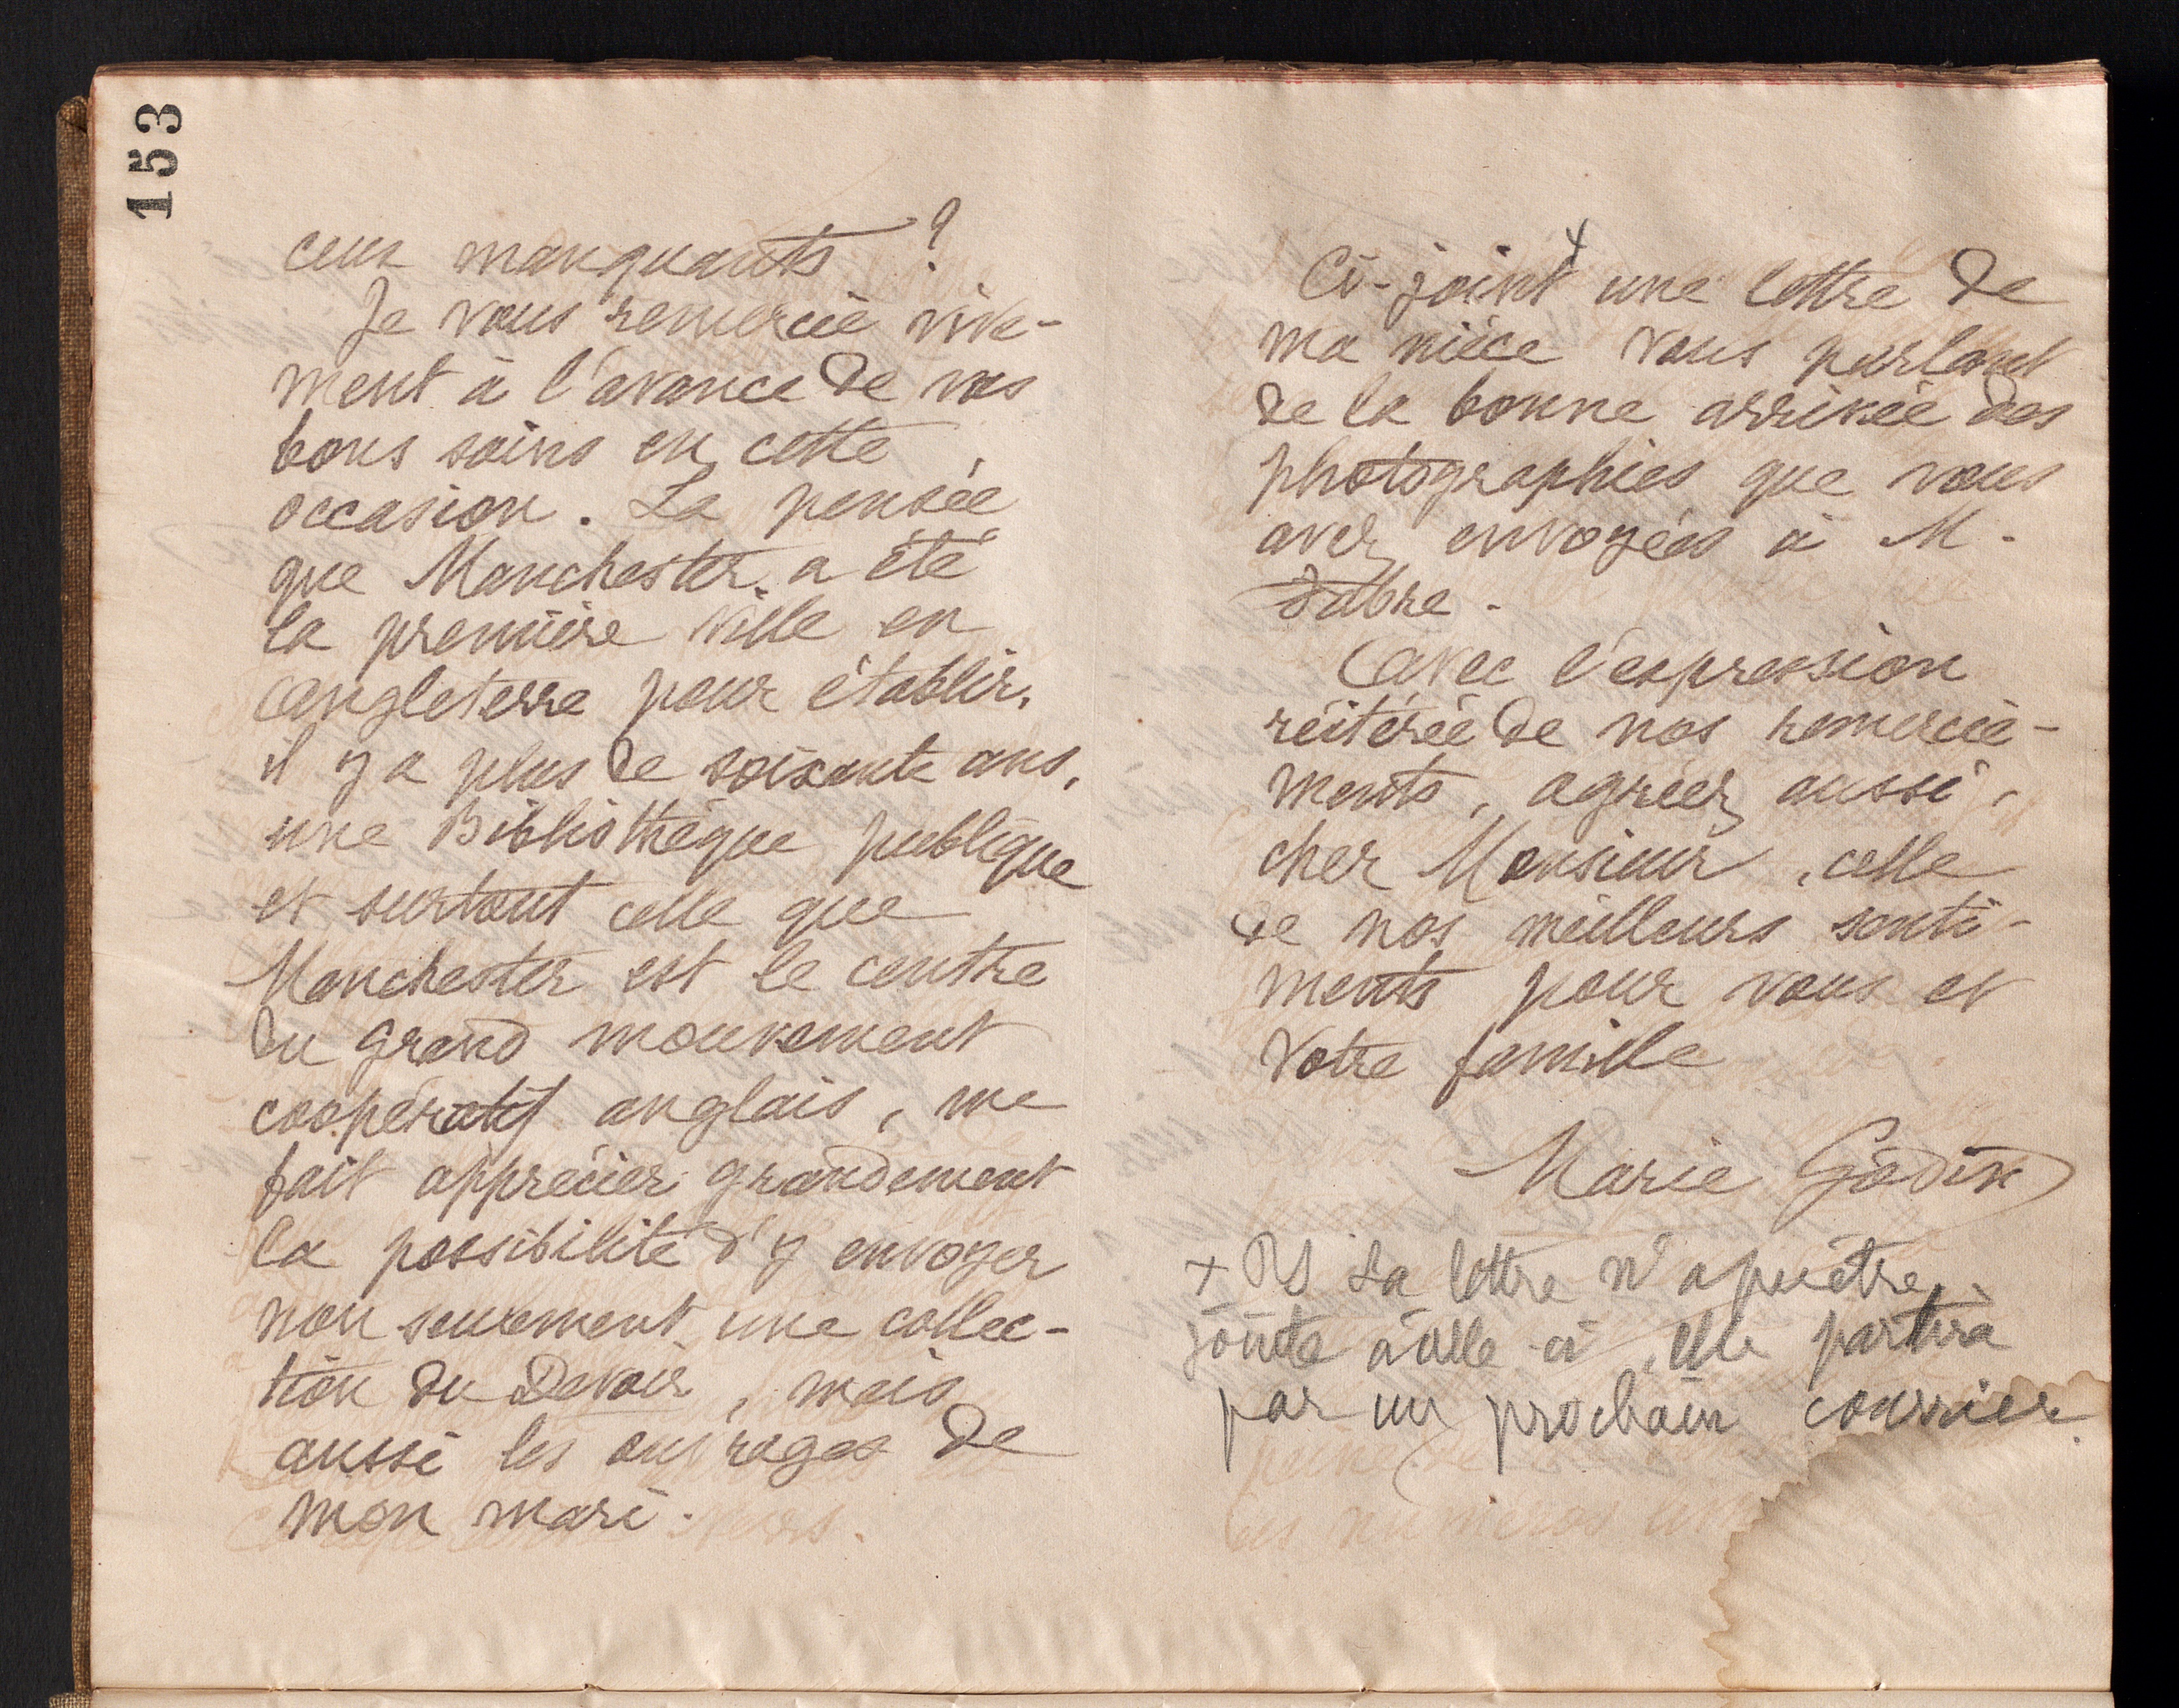 153
ceux manquants ?
Je vous remercie vive-
ment à l'avance de vos
bons soins en cette
occasion. La pensée
que Manchester a été
la première ville en
Angleterre pour établir,
il y a plus de soixante ans,
une Bibliothèque publique
et surtout celle que
Manchester est le centre
du grand mouvement
coopératif anglais, me
fait apprécier grandement
la possibilité d'y envoyer
non seulement une collec-
tion du Devoir, mais
aussi les ouvrages de
mon mari.
Ci-joint + une lettre de
ma nièce vous parlant
de la bonne arrivée des
photographies que vous
avez envoyées à M.
Fabre.
Avec l'expression
réitérée de nos remercie-
ments, agréez aussi,
cher Monsieur, celle
de nos meilleurs senti-
ments pour vous et
votre famille
Marie Godin
+ PS La lettre n'a pu être
jointe à celle-ci, elle partira
par un prochain courrier.